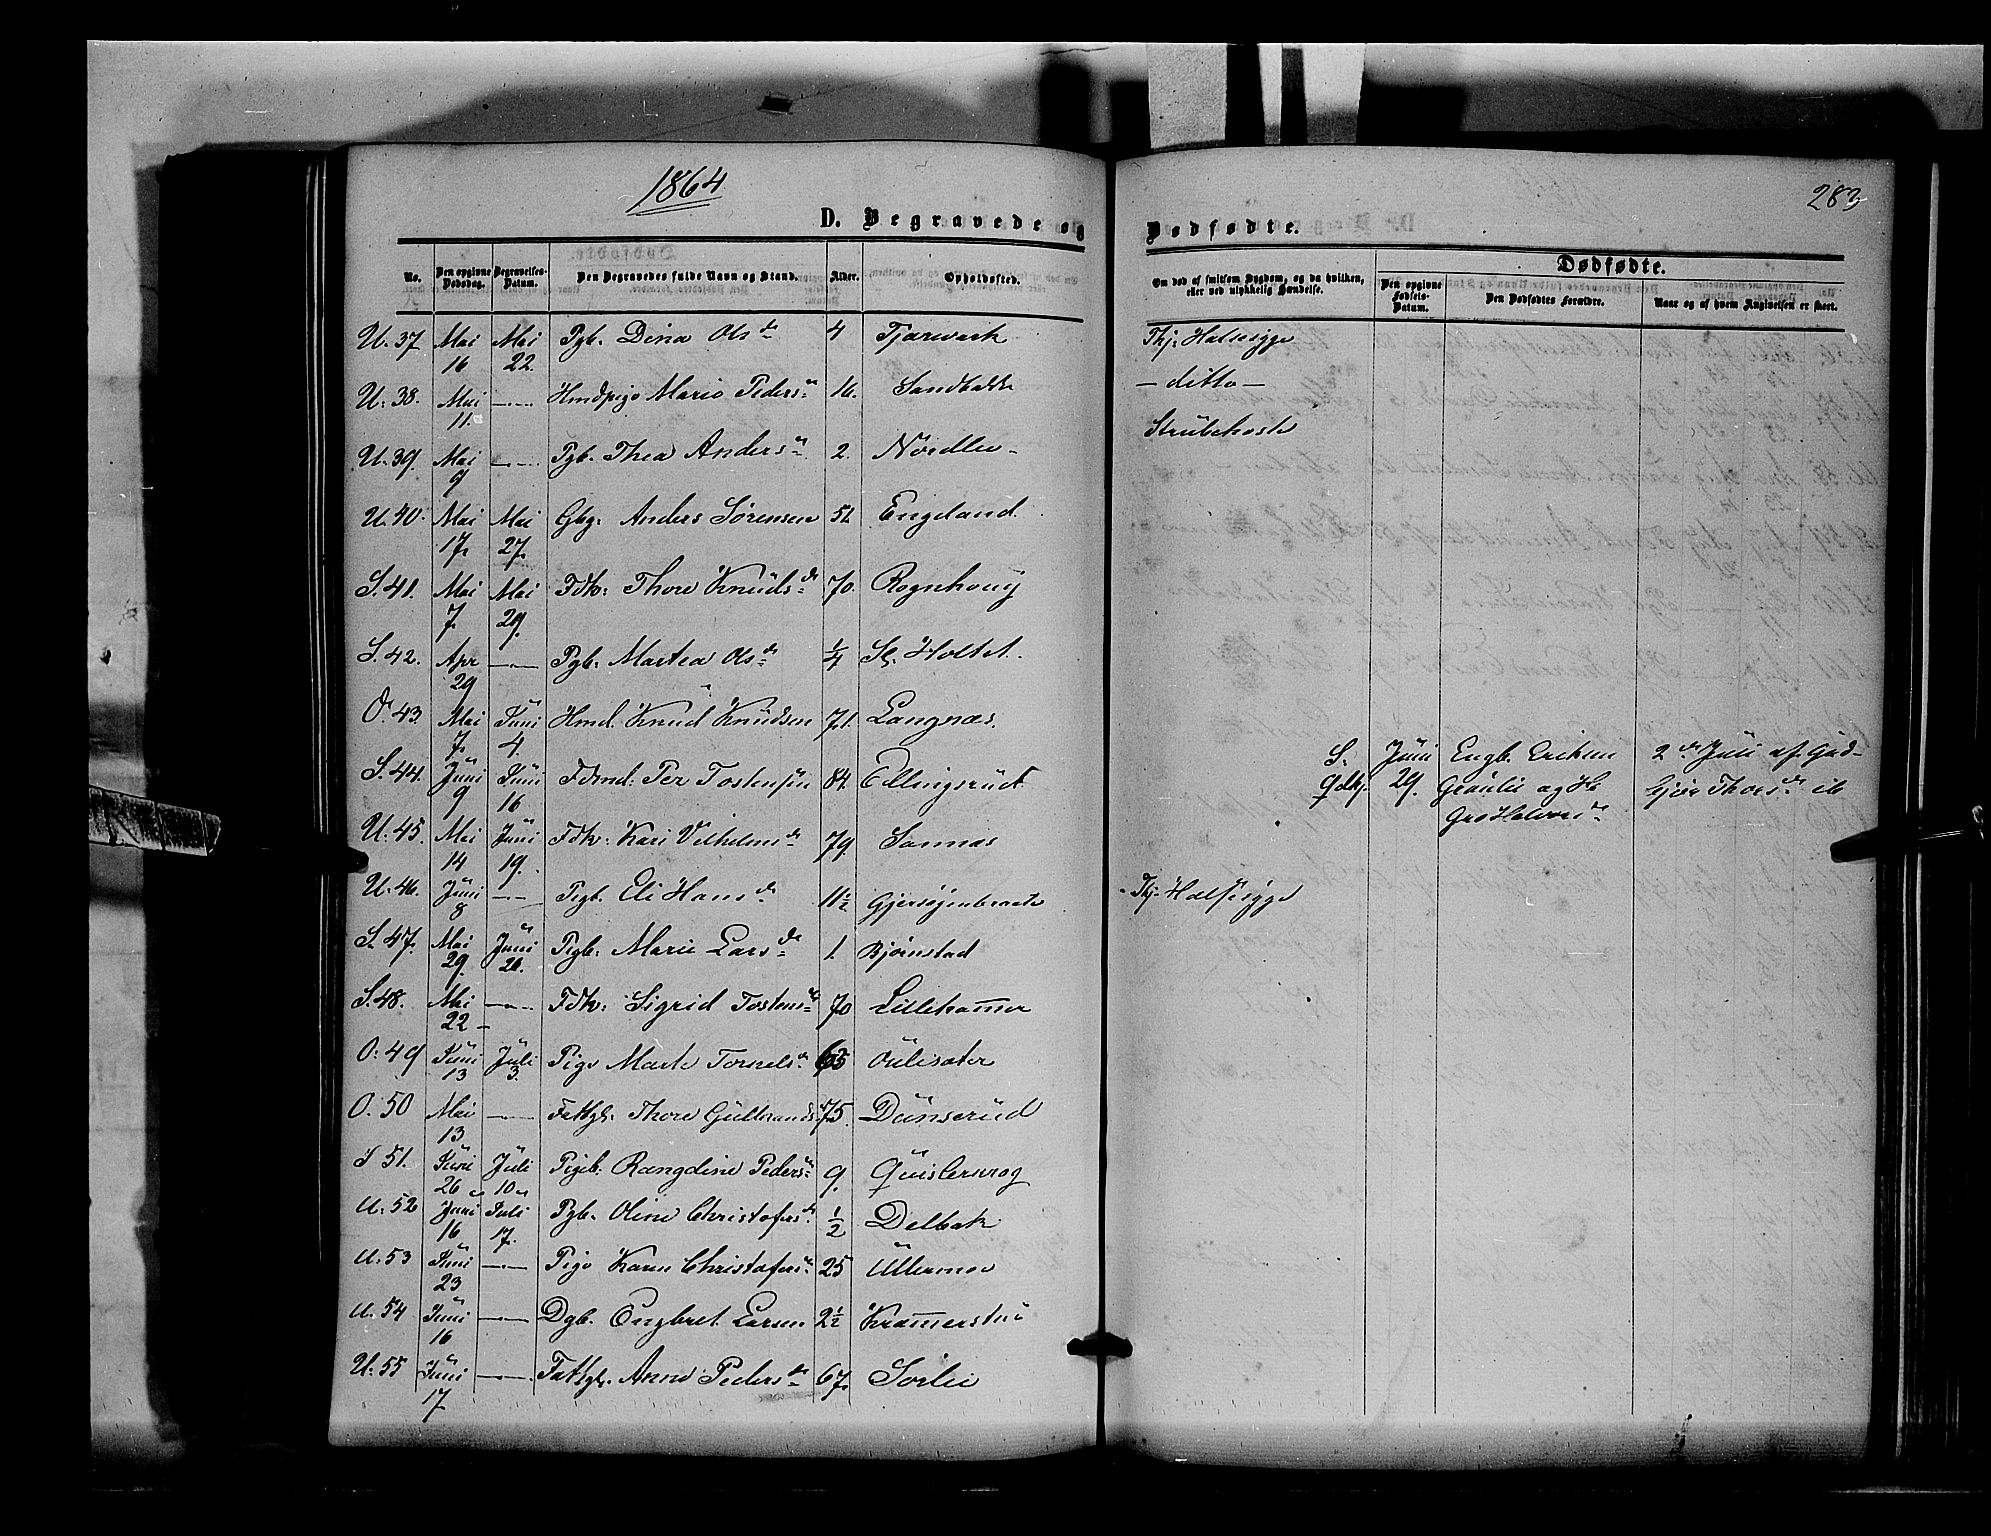 1864
283
D. Begravede og
Dødfødte.
No.
Den opgivne Dødsdag.
Begravelses-Datum.
Den Begravedes fulde Navn og Stand.
Alder.
Opholdssted.
Om død af smitsom Sygdom, og da hvilken, eller ved ulykkelig Hændelse.
Dødfødte.
Den opgivne Fødsels-Datum.
Den Dødfødtes Forældre.
Naar og af hvem Angivelsen er skeet.
U. 37 Mai 16 Mai 22. Pgb. Dina Olsdr 4 Tjærverk Thj. Halsesyge
U. 38. Mai 11. — Marie Pedersdr 16. Sandbakke — ditto —
U. 39. Mai 9 — Pgb. Thea Andersdr 2. Nordlie Strubehoste
U. 40. Mai 17. Mai 27. Gbg: Anders Sørensen 51 Engeland
S. 41. Mai 7. Mai 29. Fdk: Thore Knudsdr 70. Rognhoug
S. 42. Apr 29 — Pgb. Martea Olsdr ¼ Holtet.
O. 43. Mai 7. Juni 4. Hmd. Knud Knudsen 71. Langnæs.
S. 44. Juni 9 Juni 16 Fdmd: Per Tostensen 84. Ellingsrud
S. Juni 29. Engb. Eriksen Graulie og H. Gro Halvorsdr
2den Juli af Gudbjør Thorsdr ib
U. 45. Mai 14 Juni 19. Fdk: Kari Vilhelmsdr 79. Sonnæs
U. 46. Juni 8 — Pigb. Eli Hansdr 11½ Gjersøienbraate Thj. Halssyge
S. 47. Mai 29. Juni 26. Pigb. Marie Larsdr 1. Bjørnstad
S. 48. Mai 22 — Fdk: Sigrid Tostensdr 70 Lillehammer
O: 49 Juni 13 Juli 3. Pige Marte 63 Oulisæter
O. 50 Mai 13 — Fattgl. Thore Gulbrandsdr 75. Dunserud
S 51. Juni 26 Juli 10 Pigeb: Rangdine Pedersdr 9. Quislerkrog
U. 52 Juni 16 Juli 17. Pgb. Oline Christofersdr ½ Delbak
U. 53 Juni 23 — Pige Karen Christofersdr 25 Ullermoe
U. 54 Juni 16 — Dgb. Engbret Larsen 2½ Kramerstu
U. 55 Juni 17 — Fattgl. Anne Pedersdr 67. Sorlie